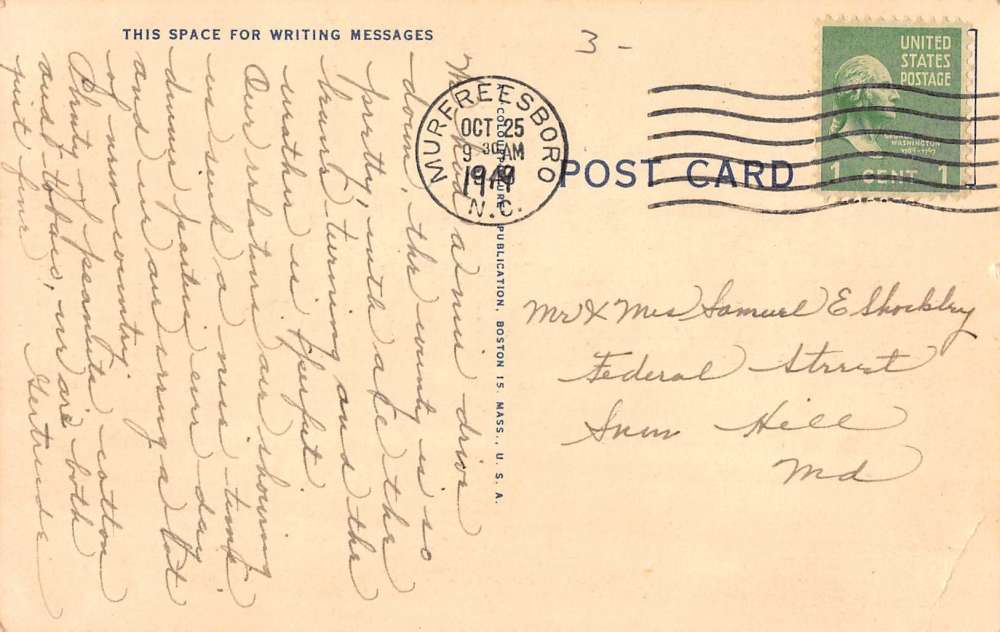 THIS SPACE FOR WRITING MESSAGES
We had a nice drive
down, the county is so
pretty, with all the
trees turning and the
weather is perfect.
Our relatives are showing
us such a nice time
dinner parties every day
and we are seeing a lot
of new country,
Plenty of peanuts, cotton
and tobacco, we are both
just fine Gertrude
MURFREESBORO
OCT 25
9 30 AM
1949
N.C.
PUBLICATION, BOSTON 15, MASS., U. S. A.
3 -
POST CARD
UNITED
STATES
POSTAGE
WASHINGTON
1789-1797
1 CENT 1
Mr & Mrs Samuel E Shockley
Federal Street
Snow Hill
Md